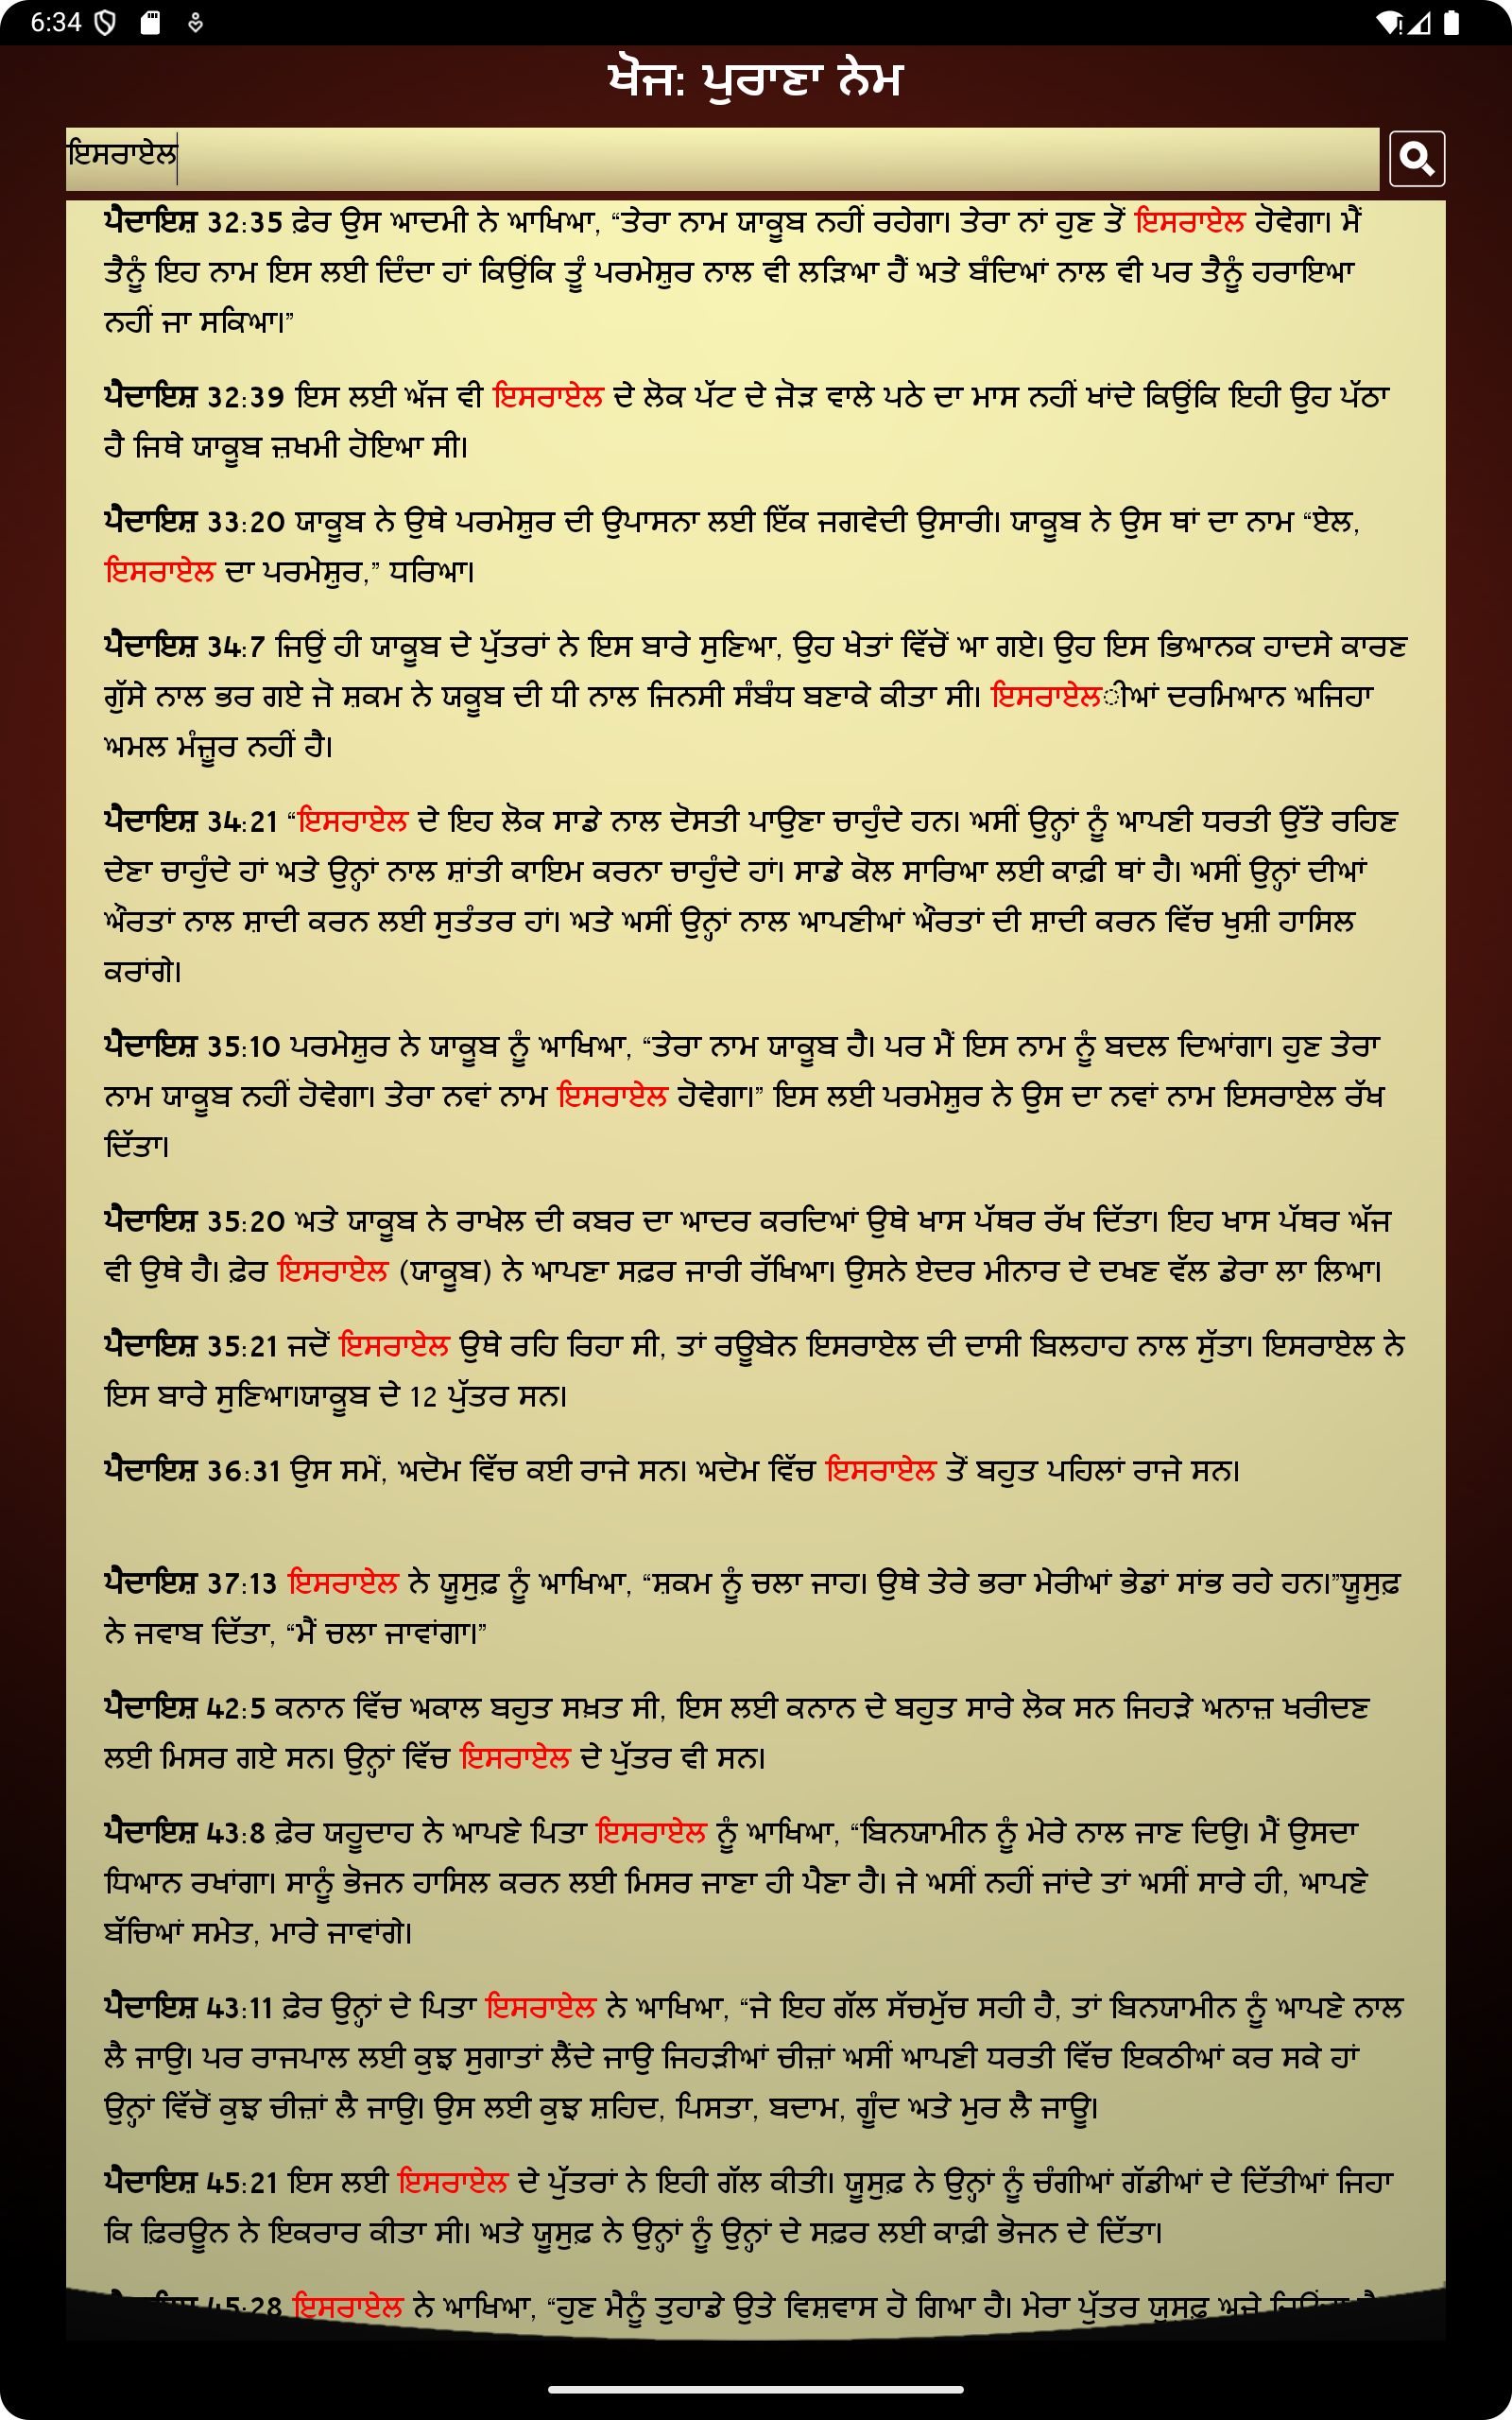 6:34
ਖੋਜ: ਪੁਰਾਣਾ ਨੇਮ
ਇਸਰਾਏਲ
ਪੈਦਾਇਸ਼ 32:35 ਫ਼ੇਰ ਉਸ ਆਦਮੀ ਨੇ ਆਖਿਆ, “ਤੇਰਾ ਨਾਮ ਯਾਕੂਬ ਨਹੀਂ ਰਹੇਗਾ। ਤੇਰਾ ਨਾਂ ਹੁਣ ਤੋਂ ਇਸਰਾਏਲ ਹੋਵੇਗਾ। ਮੈਂ
ਤੈਨੂੰ ਇਹ ਨਾਮ ਇਸ ਲਈ ਦਿੰਦਾ ਹਾਂ ਕਿਉਂਕਿ ਤੂੰ ਪਰਮੇਸ਼ੁਰ ਨਾਲ ਵੀ ਲੜਿਆ ਹੈਂ ਅਤੇ ਬੰਦਿਆਂ ਨਾਲ ਵੀ ਪਰ ਤੈਨੂੰ ਹਰਾਇਆ
ਨਹੀਂ ਜਾ ਸਕਿਆ।”
ਪੈਦਾਇਸ਼ 32:39 ਇਸ ਲਈ ਅੱਜ ਵੀ ਇਸਰਾਏਲ ਦੇ ਲੋਕ ਪੱਟ ਦੇ ਜੋੜ ਵਾਲੇ ਪਠੇ ਦਾ ਮਾਸ ਨਹੀਂ ਖਾਂਦੇ ਕਿਉਂਕਿ ਇਹੀ ਉਹ ਪੱਠਾ
ਹੈ ਜਿਥੇ ਯਾਕੂਬ ਜ਼ਖਮੀ ਹੋਇਆ ਸੀ।
ਪੈਦਾਇਸ਼ 33:20 ਯਾਕੂਬ ਨੇ ਉਥੇ ਪਰਮੇਸ਼ੁਰ ਦੀ ਉਪਾਸਨਾ ਲਈ ਇੱਕ ਜਗਵੇਦੀ ਉਸਾਰੀ। ਯਾਕੂਬ ਨੇ ਉਸ ਥਾਂ ਦਾ ਨਾਮ “ਏਲ,
ਇਸਰਾਏਲ ਦਾ ਪਰਮੇਸ਼ੁਰ,” ਧਰਿਆ।
ਪੈਦਾਇਸ਼ 34:7 ਜਿਉਂ ਹੀ ਯਾਕੂਬ ਦੇ ਪੁੱਤਰਾਂ ਨੇ ਇਸ ਬਾਰੇ ਸੁਣਿਆ, ਉਹ ਖੇਤਾਂ ਵਿੱਚੋਂ ਆ ਗਏ। ਉਹ ਇਸ ਭਿਆਨਕ ਹਾਦਸੇ ਕਾਰਣ
ਗੁੱਸੇ ਨਾਲ ਭਰ ਗਏ ਜੋ ਸ਼ਕਮ ਨੇ ਯਕੂਬ ਦੀ ਧੀ ਨਾਲ ਜਿਨਸੀ ਸੰਬੰਧ ਬਣਾਕੇ ਕੀਤਾ ਸੀ। ਇਸਰਾਏਲੀਆਂ ਦਰਮਿਆਨ ਅਜਿਹਾ
ਅਮਲ ਮੰਜ਼ੂਰ ਨਹੀਂ ਹੈ।
ਪੈਦਾਇਸ਼ 34:21 “ਇਸਰਾਏਲ ਦੇ ਇਹ ਲੋਕ ਸਾਡੇ ਨਾਲ ਦੋਸਤੀ ਪਾਉਣਾ ਚਾਹੁੰਦੇ ਹਨ। ਅਸੀਂ ਉਨ੍ਹਾਂ ਨੂੰ ਆਪਣੀ ਧਰਤੀ ਉੱਤੇ ਰਹਿਣ
ਦੇਣਾ ਚਾਹੁੰਦੇ ਹਾਂ ਅਤੇ ਉਨ੍ਹਾਂ ਨਾਲ ਸ਼ਾਂਤੀ ਕਾਇਮ ਕਰਨਾ ਚਾਹੁੰਦੇ ਹਾਂ। ਸਾਡੇ ਕੋਲ ਸਾਰਿਆ ਲਈ ਕਾਫ਼ੀ ਥਾਂ ਹੈ। ਅਸੀਂ ਉਨ੍ਹਾਂ ਦੀਆਂ
ਔਰਤਾਂ ਨਾਲ ਸ਼ਾਦੀ ਕਰਨ ਲਈ ਸੁਤੰਤਰ ਹਾਂ। ਅਤੇ ਅਸੀਂ ਉਨ੍ਹਾਂ ਨਾਲ ਆਪਣੀਆਂ ਔਰਤਾਂ ਦੀ ਸ਼ਾਦੀ ਕਰਨ ਵਿੱਚ ਖੁਸ਼ੀ ਹਾਸਿਲ
ਕਰਾਂਗੇ।
ਪੈਦਾਇਸ਼ 35:10 ਪਰਮੇਸ਼ੁਰ ਨੇ ਯਾਕੂਬ ਨੂੰ ਆਖਿਆ, “ਤੇਰਾ ਨਾਮ ਯਾਕੂਬ ਹੈ। ਪਰ ਮੈਂ ਇਸ ਨਾਮ ਨੂੰ ਬਦਲ ਦਿਆਂਗਾ। ਹੁਣ ਤੇਰਾ
ਨਾਮ ਯਾਕੂਬ ਨਹੀਂ ਹੋਵੇਗਾ। ਤੇਰਾ ਨਵਾਂ ਨਾਮ ਇਸਰਾਏਲ ਹੋਵੇਗਾ।” ਇਸ ਲਈ ਪਰਮੇਸ਼ੁਰ ਨੇ ਉਸ ਦਾ ਨਵਾਂ ਨਾਮ ਇਸਰਾਏਲ ਰੱਖ
ਦਿੱਤਾ।
ਪੈਦਾਇਸ਼ 35:20 ਅਤੇ ਯਾਕੂਬ ਨੇ ਰਾਖੇਲ ਦੀ ਕਬਰ ਦਾ ਆਦਰ ਕਰਦਿਆਂ ਉਥੇ ਖਾਸ ਪੱਥਰ ਰੱਖ ਦਿੱਤਾ। ਇਹ ਖਾਸ ਪੱਥਰ ਅੱਜ
ਵੀ ਉਥੇ ਹੈ। ਫ਼ੇਰ ਇਸਰਾਏਲ (ਯਾਕੂਬ) ਨੇ ਆਪਣਾ ਸਫ਼ਰ ਜਾਰੀ ਰੱਖਿਆ। ਉਸਨੇ ਏਦਰ ਮੀਨਾਰ ਦੇ ਦਖਣ ਵੱਲ ਡੇਰਾ ਲਾ ਲਿਆ।
ਪੈਦਾਇਸ਼ 35:21 ਜਦੋਂ ਇਸਰਾਏਲ ਉਥੇ ਰਹਿ ਰਿਹਾ ਸੀ, ਤਾਂ ਰਊਬੇਨ ਇਸਰਾਏਲ ਦੀ ਦਾਸੀ ਬਿਲਹਾਹ ਨਾਲ ਸੁੱਤਾ। ਇਸਰਾਏਲ ਨੇ
ਇਸ ਬਾਰੇ ਸੁਣਿਆ।ਯਾਕੂਬ ਦੇ 12 ਪੁੱਤਰ ਸਨ।
ਪੈਦਾਇਸ਼ 36:31 ਉਸ ਸਮੇਂ, ਅਦੋਮ ਵਿੱਚ ਕਈ ਰਾਜੇ ਸਨ। ਅਦੋਮ ਵਿੱਚ ਇਸਰਾਏਲ ਤੋਂ ਬਹੁਤ ਪਹਿਲਾਂ ਰਾਜੇ ਸਨ।
ਪੈਦਾਇਸ਼ 37:13 ਇਸਰਾਏਲ ਨੇ ਯੂਸੁਫ਼ ਨੂੰ ਆਖਿਆ, “ਸ਼ਕਮ ਨੂੰ ਚਲਾ ਜਾਹ। ਉਥੇ ਤੇਰੇ ਭਰਾ ਮੇਰੀਆਂ ਭੇਡਾਂ ਸਾਂਭ ਰਹੇ ਹਨ।”ਯੂਸੁਫ਼
ਨੇ ਜਵਾਬ ਦਿੱਤਾ, “ਮੈਂ ਚਲਾ ਜਾਵਾਂਗਾ।”
ਪੈਦਾਇਸ਼ 42:5 ਕਨਾਨ ਵਿੱਚ ਅਕਾਲ ਬਹੁਤ ਸਖ਼ਤ ਸੀ, ਇਸ ਲਈ ਕਨਾਨ ਦੇ ਬਹੁਤ ਸਾਰੇ ਲੋਕ ਸਨ ਜਿਹੜੇ ਅਨਾਜ਼ ਖਰੀਦਣ
ਲਈ ਮਿਸਰ ਗਏ ਸਨ। ਉਨ੍ਹਾਂ ਵਿੱਚ ਇਸਰਾਏਲ ਦੇ ਪੁੱਤਰ ਵੀ ਸਨ।
ਪੈਦਾਇਸ਼ 43:8 ਫ਼ੇਰ ਯਹੂਦਾਹ ਨੇ ਆਪਣੇ ਪਿਤਾ ਇਸਰਾਏਲ ਨੂੰ ਆਖਿਆ, “ਬਿਨਯਾਮੀਨ ਨੂੰ ਮੇਰੇ ਨਾਲ ਜਾਣ ਦਿਉ। ਮੈਂ ਉਸਦਾ
ਧਿਆਨ ਰਖਾਂਗਾ। ਸਾਨੂੰ ਭੋਜਨ ਹਾਸਿਲ ਕਰਨ ਲਈ ਮਿਸਰ ਜਾਣਾ ਹੀ ਪੈਣਾ ਹੈ। ਜੇ ਅਸੀਂ ਨਹੀਂ ਜਾਂਦੇ ਤਾਂ ਅਸੀਂ ਸਾਰੇ ਹੀ, ਆਪਣੇ
ਬੱਚਿਆਂ ਸਮੇਤ, ਮਾਰੇ ਜਾਵਾਂਗੇ।
ਪੈਦਾਇਸ਼ 43:11 ਫ਼ੇਰ ਉਨ੍ਹਾਂ ਦੇ ਪਿਤਾ ਇਸਰਾਏਲ ਨੇ ਆਖਿਆ, “ਜੇ ਇਹ ਗੱਲ ਸੱਚਮੁੱਚ ਸਹੀ ਹੈ, ਤਾਂ ਬਿਨਯਾਮੀਨ ਨੂੰ ਆਪਣੇ ਨਾਲ
ਲੈ ਜਾਉ। ਪਰ ਰਾਜਪਾਲ ਲਈ ਕੁਝ ਸੁਗਾਤਾਂ ਲੈਂਦੇ ਜਾਉ ਜਿਹੜੀਆਂ ਚੀਜ਼ਾਂ ਅਸੀਂ ਆਪਣੀ ਧਰਤੀ ਵਿੱਚ ਇਕਠੀਆਂ ਕਰ ਸਕੇ ਹਾਂ
ਉਨ੍ਹਾਂ ਵਿੱਚੋਂ ਕੁਝ ਚੀਜ਼ਾਂ ਲੈ ਜਾਉ। ਉਸ ਲਈ ਕੁਝ ਸ਼ਹਿਦ, ਪਿਸਤਾ, ਬਦਾਮ, ਗੂੰਦ ਅਤੇ ਮੁਰ ਲੈ ਜਾਊ।
ਪੈਦਾਇਸ਼ 45:21 ਇਸ ਲਈ ਇਸਰਾਏਲ ਦੇ ਪੁੱਤਰਾਂ ਨੇ ਇਹੀ ਗੱਲ ਕੀਤੀ। ਯੂਸੁਫ਼ ਨੇ ਉਨ੍ਹਾਂ ਨੂੰ ਚੰਗੀਆਂ ਗੱਡੀਆਂ ਦੇ ਦਿੱਤੀਆਂ ਜਿਹਾ
ਕਿ ਫ਼ਿਰਊਨ ਨੇ ਇਕਰਾਰ ਕੀਤਾ ਸੀ। ਅਤੇ ਯੂਸੁਫ਼ ਨੇ ਉਨ੍ਹਾਂ ਨੂੰ ਉਨ੍ਹਾਂ ਦੇ ਸਫ਼ਰ ਲਈ ਕਾਫ਼ੀ ਭੋਜਨ ਦੇ ਦਿੱਤਾ।
45:28 ਇਸਰਾਏਲ ਨੇ ਆਖਿਆ, “ਹੁਣ ਮੈਨੂੰ ਤੁਹਾਡੇ ਉਤੇ ਵਿਸ਼ਵਾਸ ਹੋ ਗਿਆ ਹੈ। ਮੇਰਾ ਪੁੱਤਰ